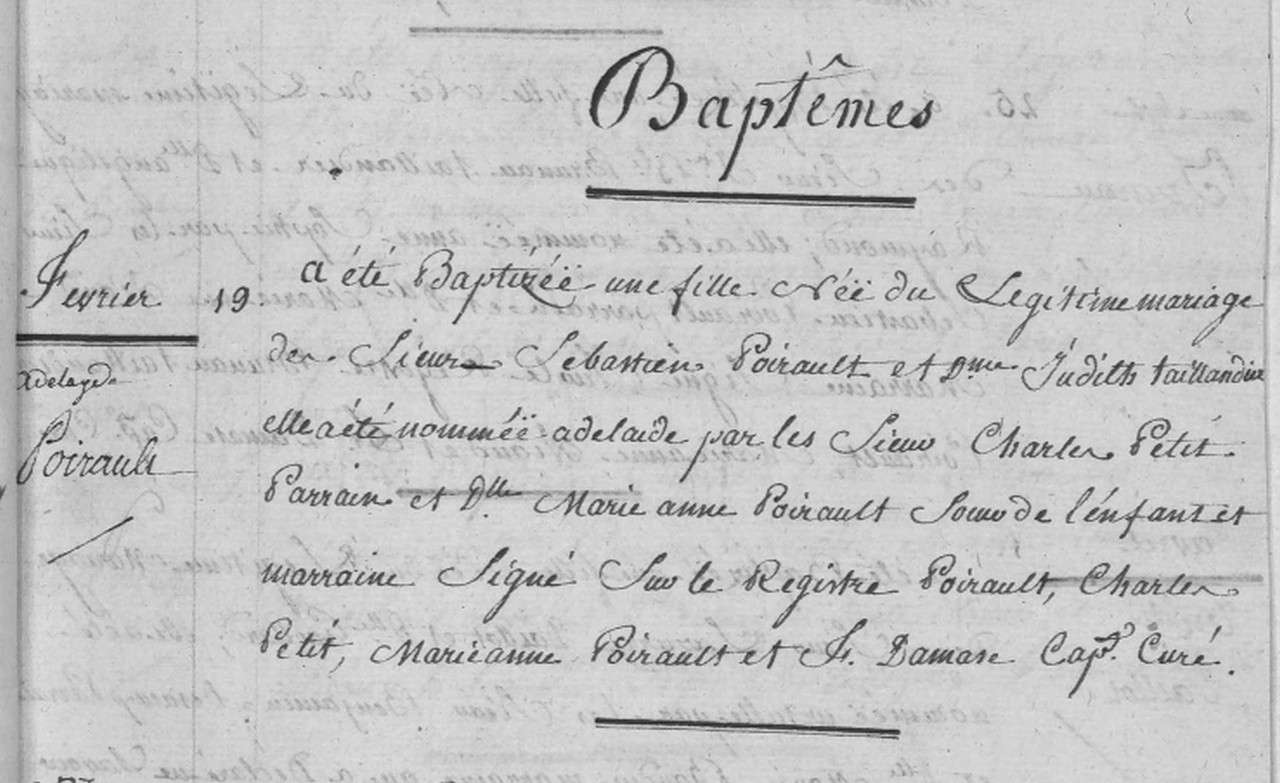 Baptêmes
Fevrier 19. a été Baptizéë une fille Néë du Legitime mariage
des Sieur Sebastien Poirault et Dme Judith taillandier
adelayde
elle a été nomméë adelaide par les Sieur Charles Petit
Poirault
Parrain et Dlle Marie anne Poirault Soeur de l'énfant et
marraine Signé Sur le Registre Poirault, Charles
Petit, Marieanne Poirault et F. Damase Cap. Curé.